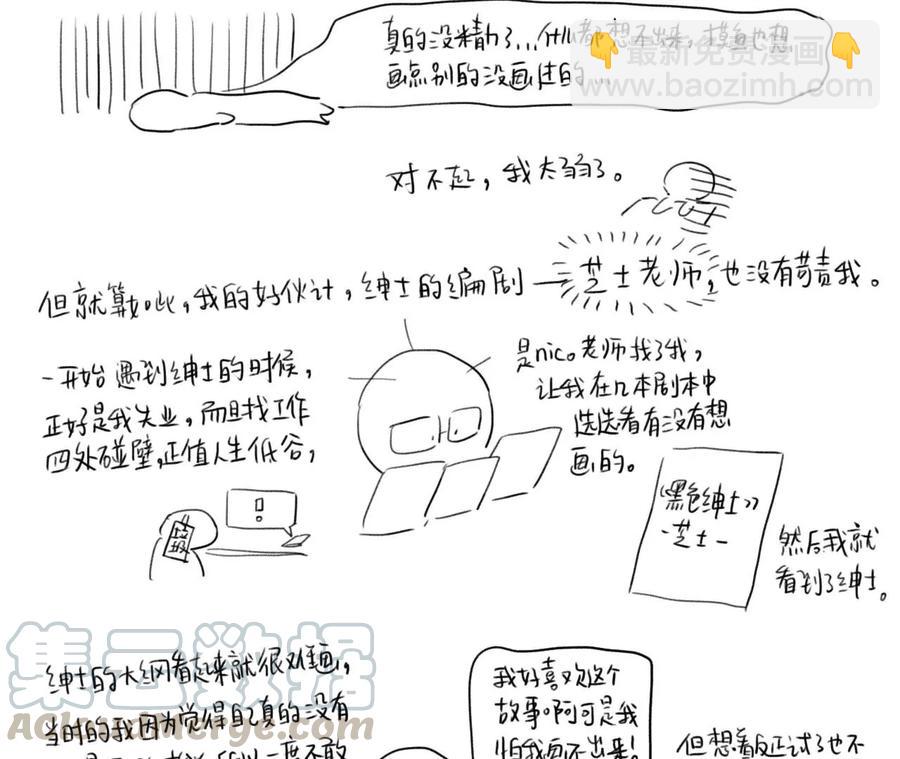 真的没精力了…什么都想不出来，摸鱼也想
画点别的没画过的…
最新免费漫画
baozimh.com
对不起，我太弱了。
但就算如此，我的好伙计，绅士的编剧—芝士老师，也没有苛责我。
一开始遇到绅士的时候，
正好是我失业，而且找工作
四处碰壁，正值人生低谷，
是nico老师找了我，
让我在几本剧本中
选选看有没有想
画的。
!
垃圾
《黑色绅士》
-芝士-
然后我就
看到了绅士。
集云数据
绅士的大纲看起来就很难画，
当时的我因为觉得自己真的没有
一度不敢
我好喜欢这个
故事啊可是我
怕我画不出来!
但想着反正试了也不